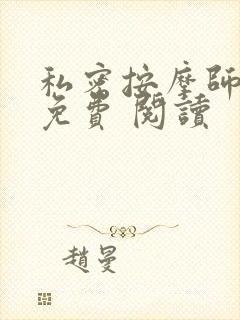 私密按摩師
免費 閱讀
趙曼